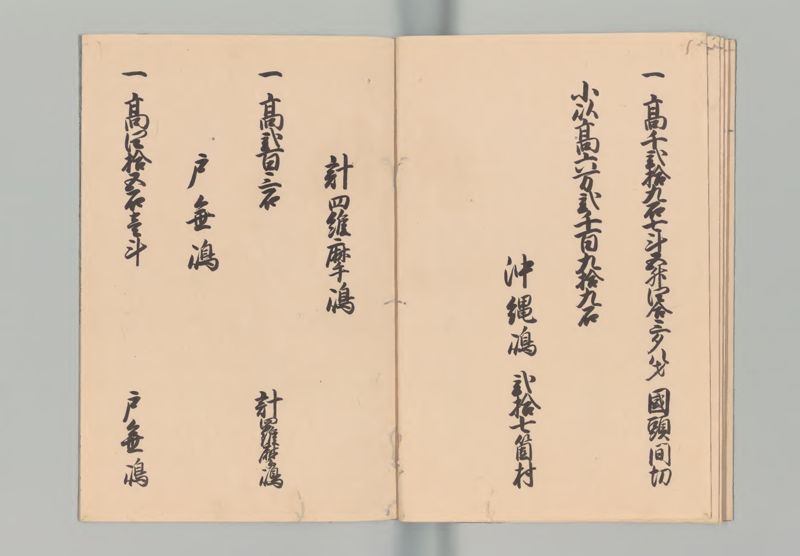 一 高千弐拾九石七斗五升四合三勺八才 國頭間切
小以高六万弐千百九拾九石
沖縄嶋 弐拾七箇村
計羅摩嶋
一 高弐百三石 計羅摩嶋
戸無嶋
一 高四拾五石壱斗 戸無嶋